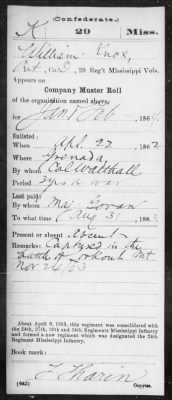 (Confederate.)
K 29 Miss.
William Knox,
Pvt, Co. D, 29 Reg't Mississippi Vols.
Appears on
Company Muster Roll
of the organization named above,
for Jan & Feb, 1864.
Enlisted:
When Apl. 22, 1862.
Where Grenada,
By whom Col Walthall
Period 3 yrs or war
Last paid:
By whom Maj. Govan
To what time Aug 31, 1863.
Present or absent Absent
Remarks: Captured in the
battle of Lookout Mt
Nov 24/63
About April 9, 1865, this regiment was consolidated with
the 24th, 27th, 30th and 34th Regiments Mississippi Infantry
and formed a new regiment which was designated the 24th
Regiment Mississippi Infantry.
Book mark:
(642) Copyist.